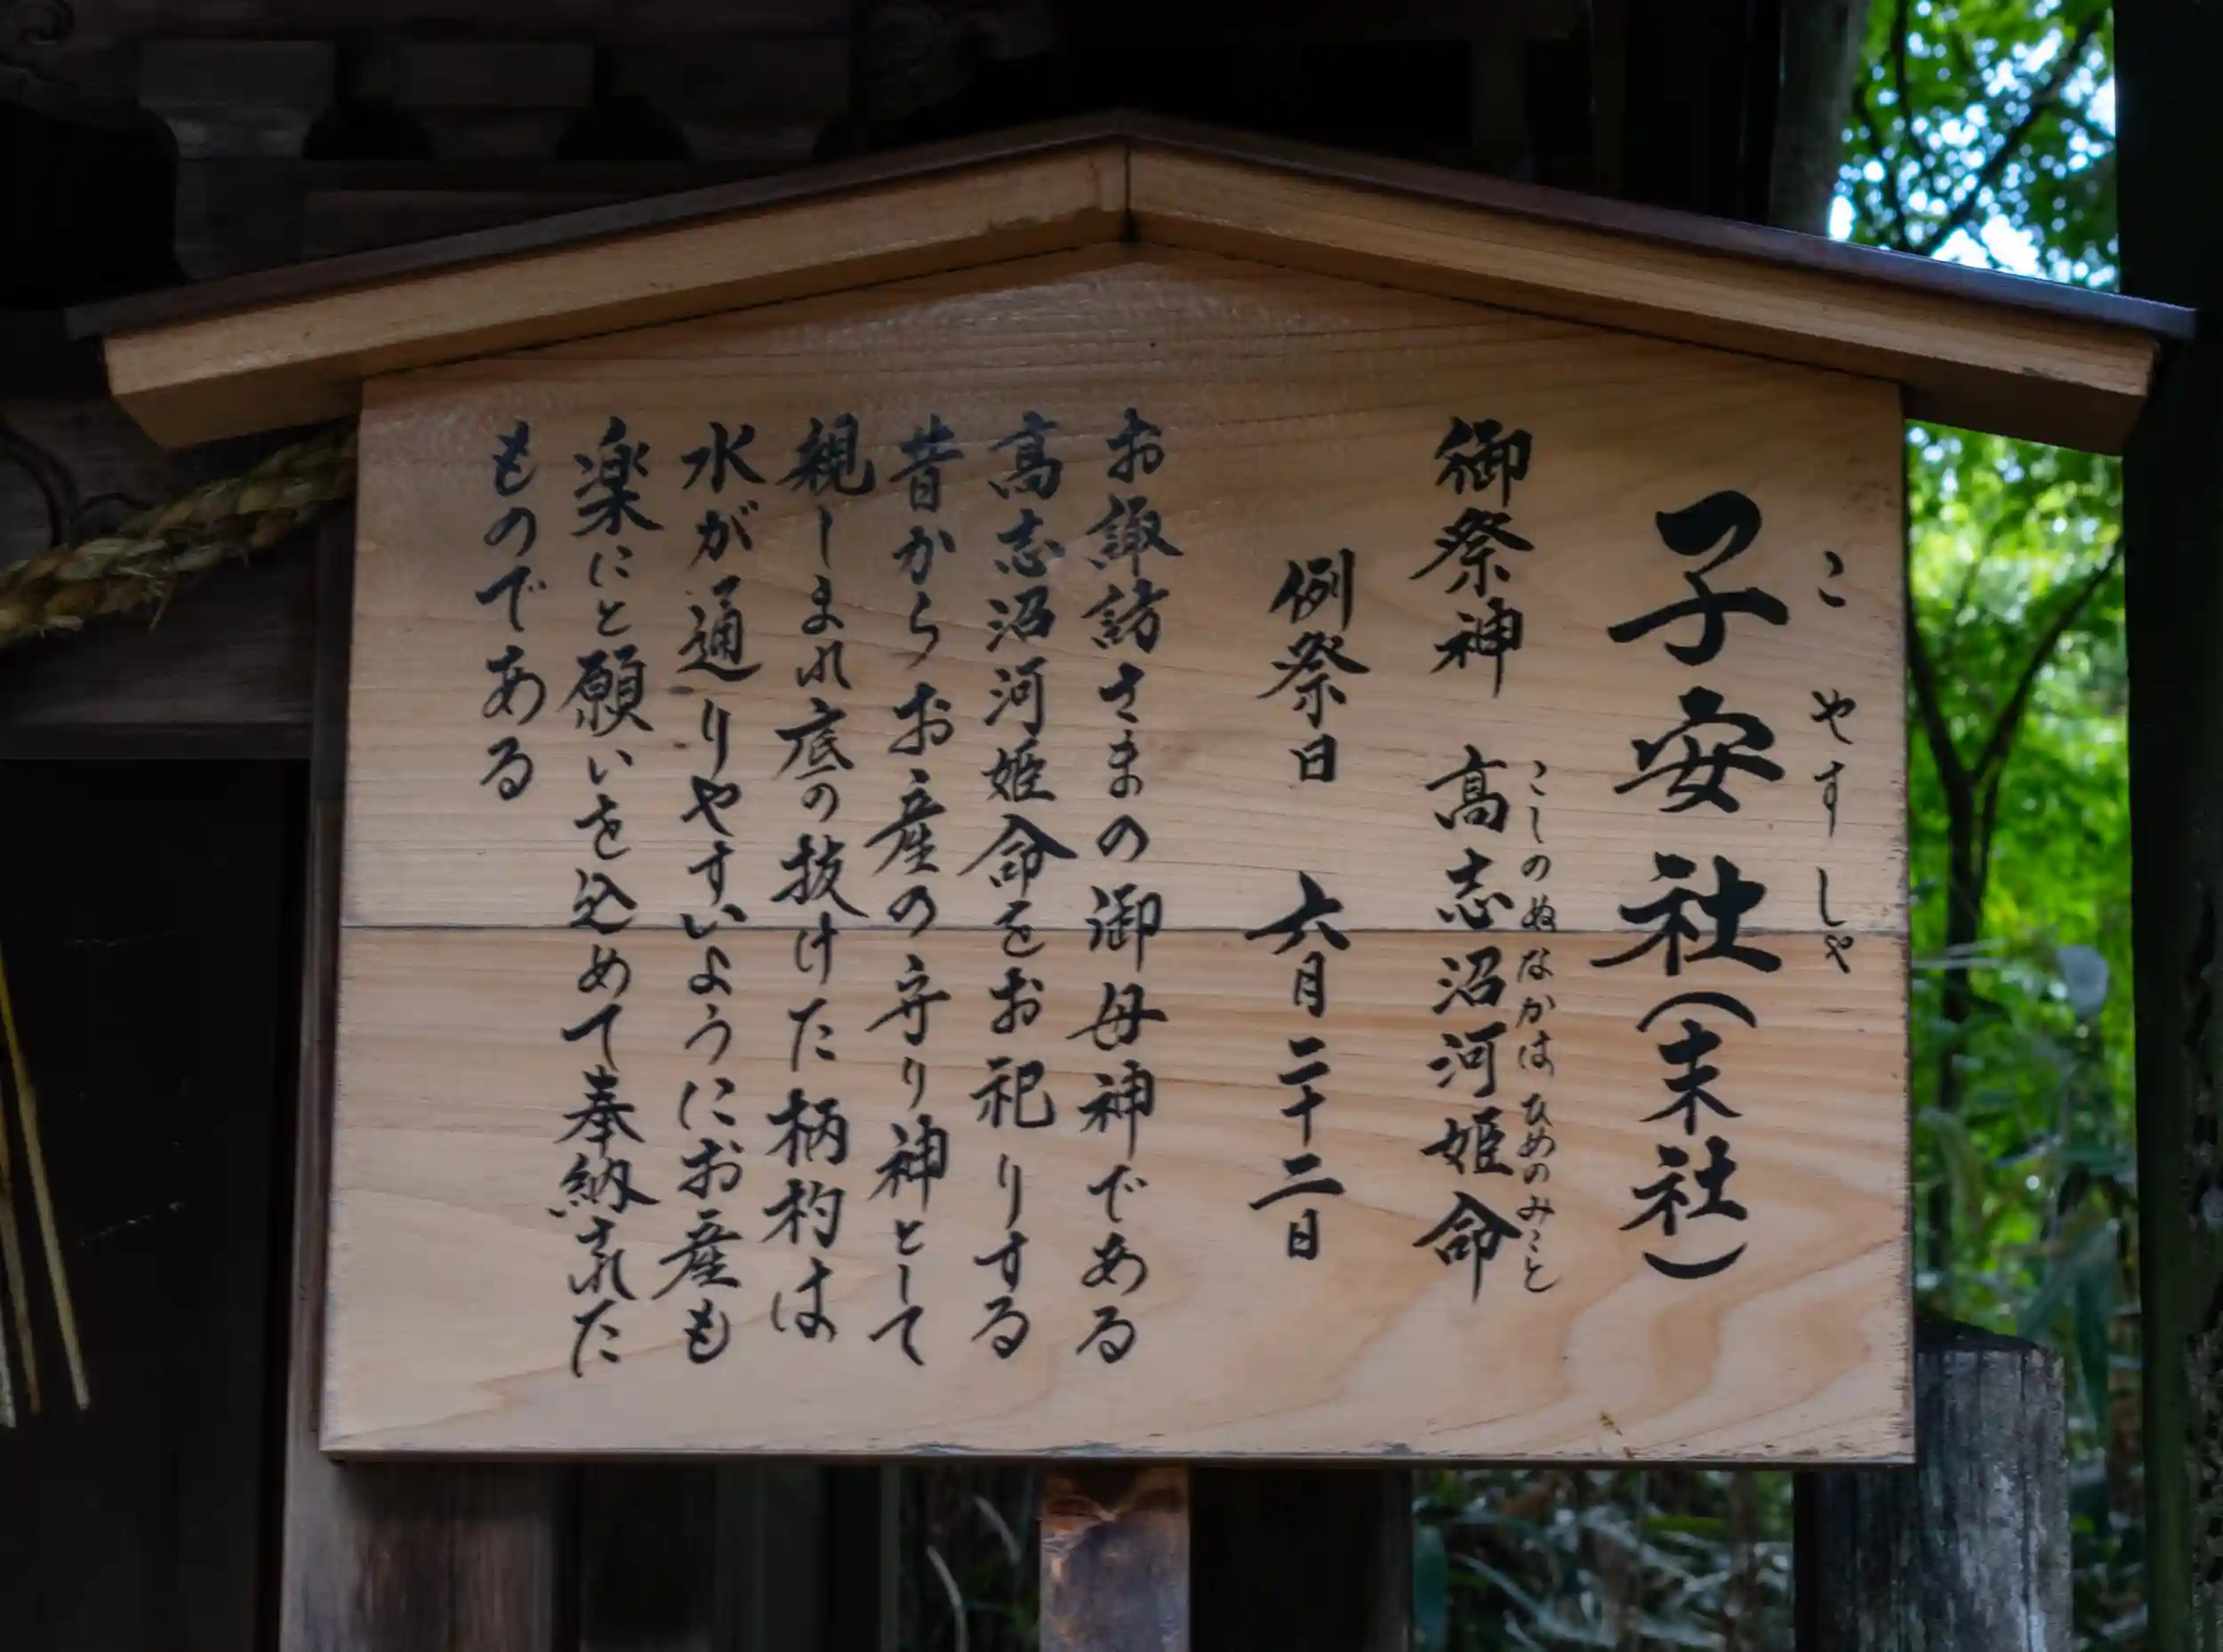 こやすしや
子安社（末社）
こしのぬなかはひめのみこと
御祭神 高志沼河姫命
例祭日 六月二十二日
お諏訪さまの御母神である
高志沼河姫命をお祀りする
昔からお産の守り神として
親しまれ底の抜けた柄杓は
水が通りやすいようにお産も
楽にと願いを込めて奉納された
ものである